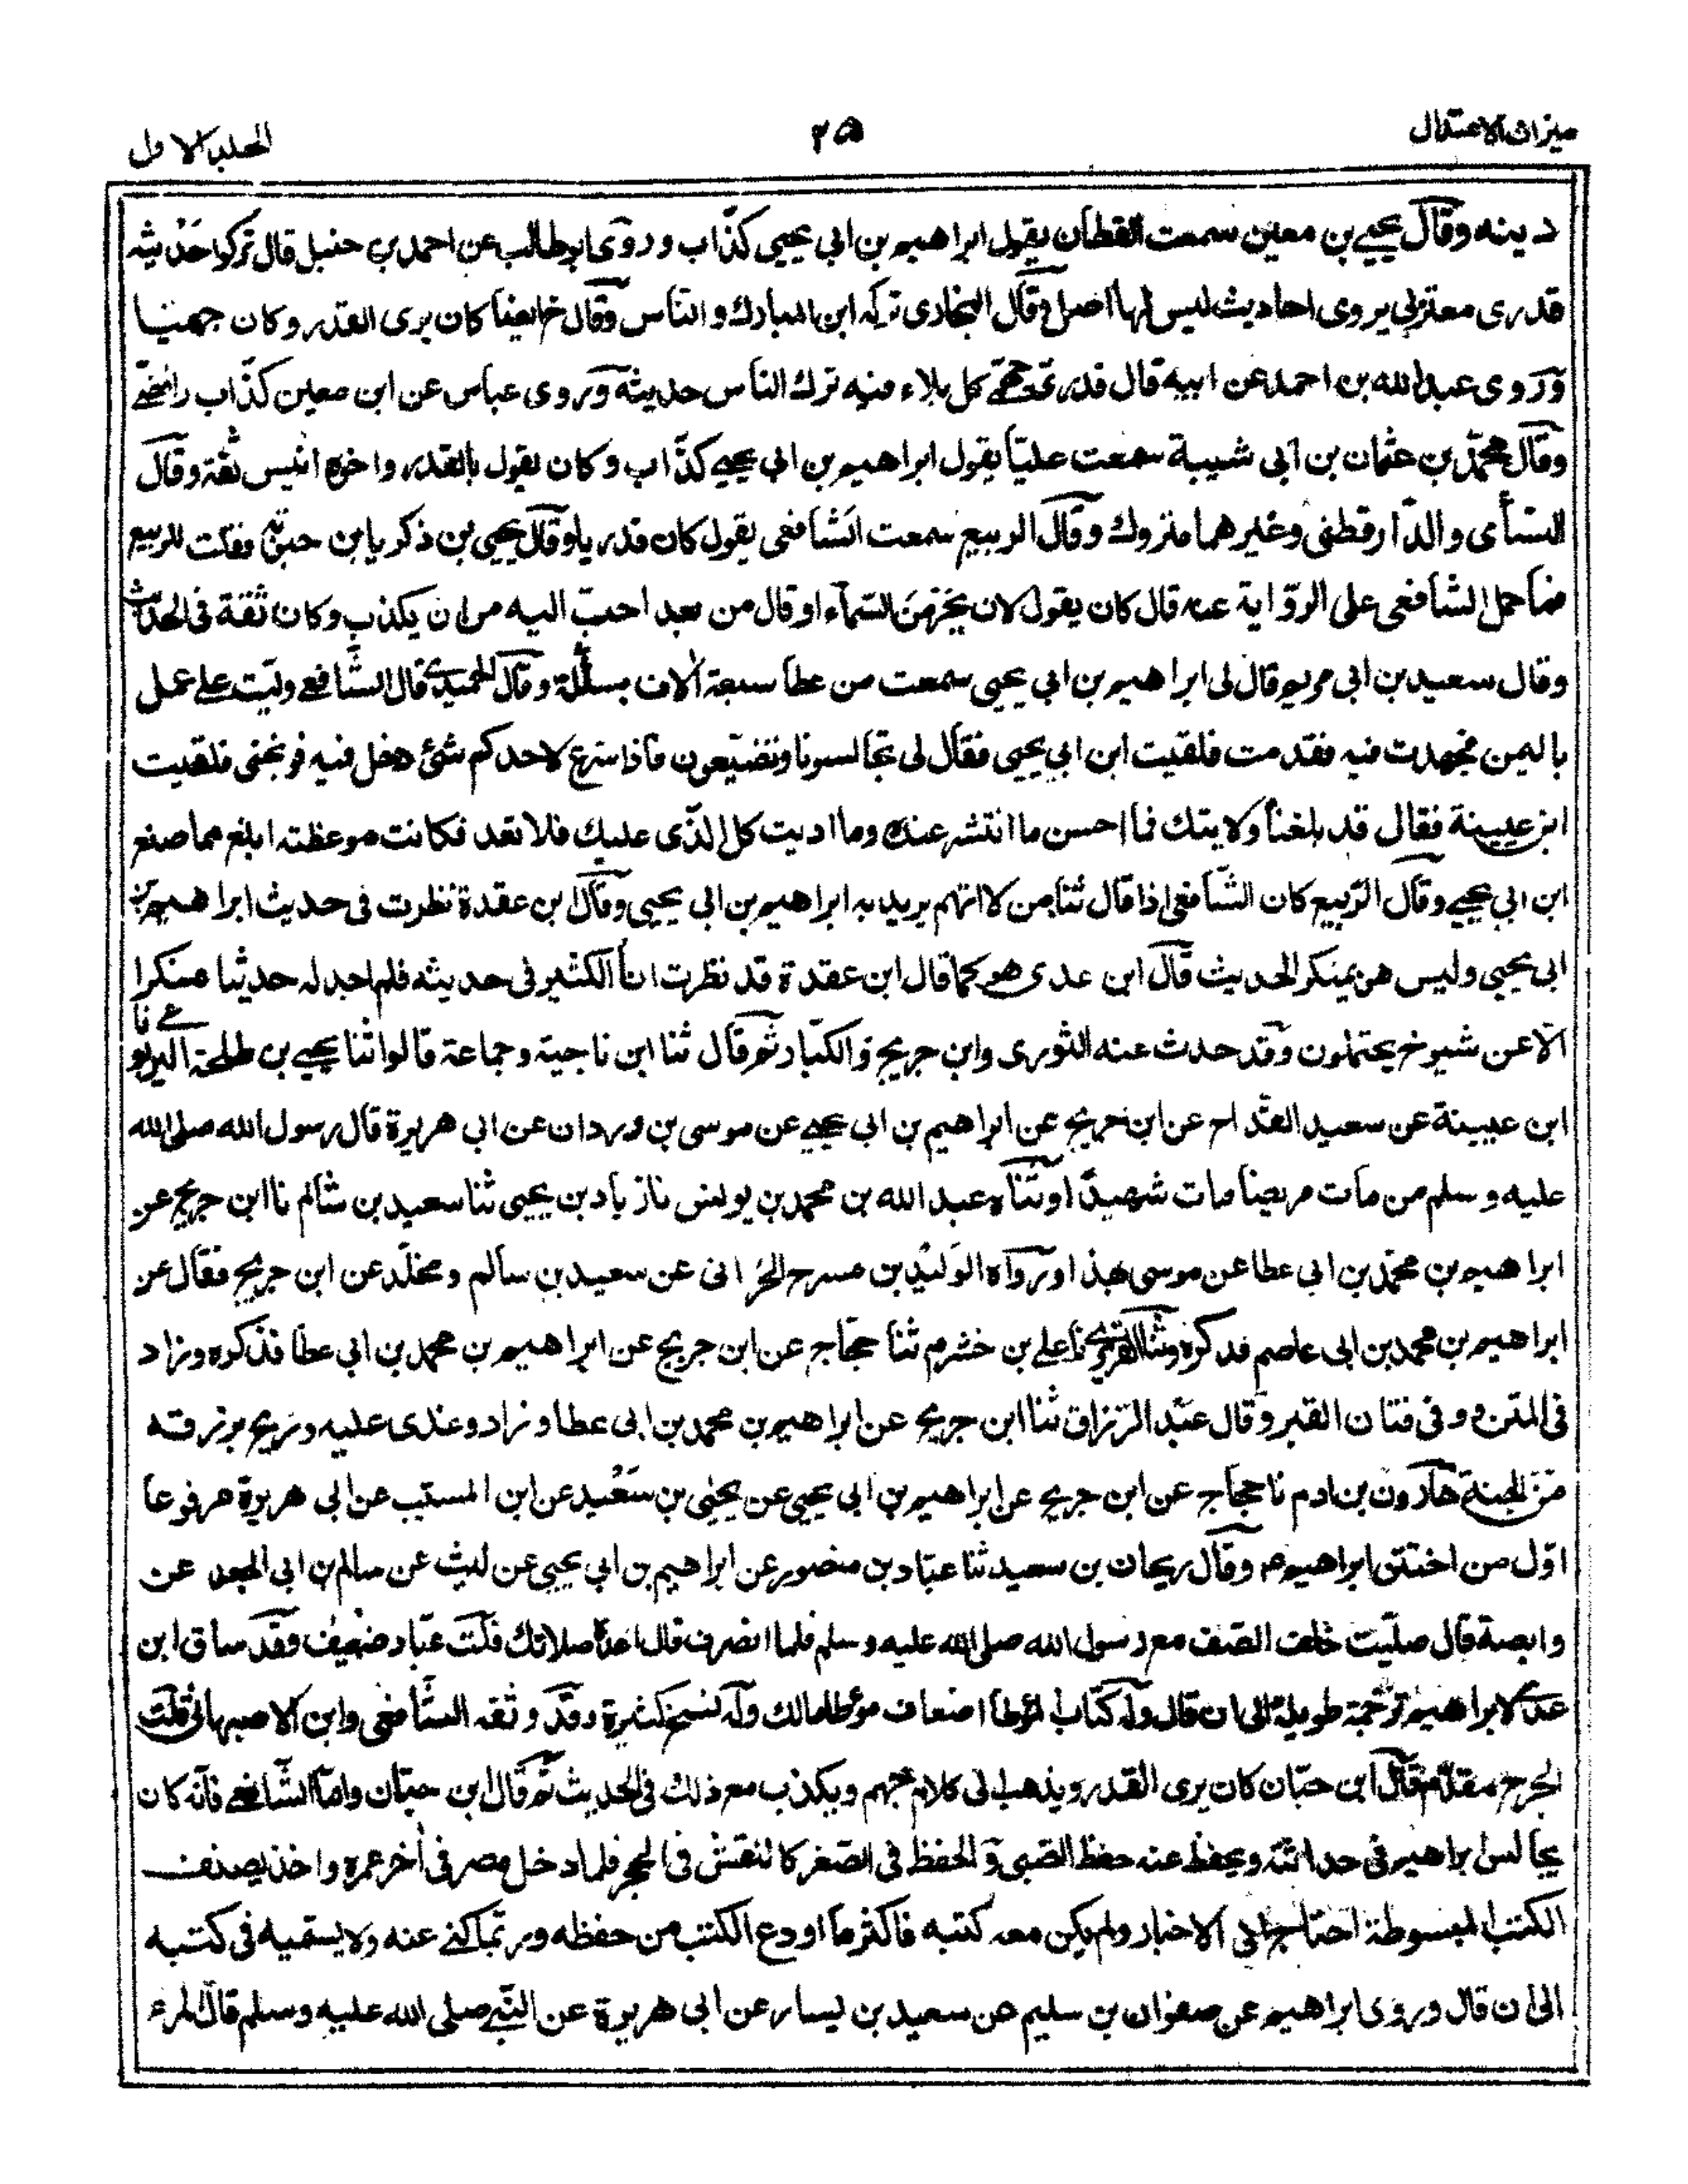 ميزان الاعتدال
٢٥
المجلد الاول
دينه وقال يحيى بن معين سمعت القطان يقول ابراهيم بن ابي يحيى كذّاب وروى ابوطالب عن احمد بن حنبل قال تركوا حديثه
قدرى معتزلي يروى احاديث ليس لها اصل وقال البخارى تركه ابن المبارك والناس وقال ايضا كان يرى القدر وكان جهميا
وروى عبد الله بن احمد عن ابيه قال قدرى جهمى كل بلاء فيه ترك الناس حديثه وروى عباس عن ابن معين كذّاب رافضى
وقال محمد بن عثمان بن ابى شيبة سمعت عليّا يقول ابراهيم بن ابي يحيى كذّاب وكان يقول بالقدر واخوه انيس ثقة وقال
النسأى والدّارقطنى وغيرهما متروك وقال الربيع سمعت الشافعى يقول كان قدريا وقال يحيى بن ذكريا بن حبوية فقلت للربيع
فما حمل الشافعى على الرّواية عنه قال كان يقول لان يخرّ من السّماء او قال من بعد احبّ اليه من ان يكذب وكان ثقة فى الحديث
وقال سعيد بن ابى مريم قال لى ابراهيم بن ابي يحيى سمعت من عطا سبعة الاف مسئلة وقال الحميدى قال الشافعى وليت على عمل
باليمن فجهدت فيه فقدمت فلقيت ابن ابي يحيى فقال لى تجالسونا وتضيّعون فاذا شرع لاحدكم شئ دخل فيه فوبخنى فلقيت
ابن عيينة فقال قد بلغنا ولايتك فما احسن ما انتشر عنك وما اديت كل الذّى عليك فلا تعد فكانت موعظته ابلغ مما صنع
ابن ابي يحيى وقال الرّبيع كان الشّافعى اذا قال ثنا من لا اتهم يريد به ابراهيم بن ابي يحيى وقال ابن عقدة نظرت فى حديث ابراهيم بن
ابى يحيى وليس هو بمنكر الحديث قال ابن عدى هو كما قال ابن عقدة قد نظرت انا الكثير فى حديثه فلم اجد له حديثا منكرا
الّا عن شيوخ يحتملون وقد حدث عنه الثورى وابن جريج والكبار ثم قال ثنا ابن ناجية وجماعة قالوا ثنا يحيى بن طلحة اليربوعى نا
ابن عيينة عن سعيد القدّاح عن ابن جريج عن ابراهيم بن ابي يحيى عن موسى بن وردان عن ابى هريرة قال رسول الله صلى الله
عليه وسلم من مات مريضا مات شهيدًا وثناه عبد الله بن محمد بن يونس نا زياد بن يحيى ثنا سعيد بن سالم نا ابن جريج عن
ابراهيم بن محمّد بن ابى عطا عن موسى بهذا ورواه الوليد بن مسرح الحرانى عن سعيد بن سالم ومخلّد عن ابن جريج فقال عن
ابراهيم بن محمد بن ابى عاصم فدكره وثنا علي بن خشرم ثنا حجّاج عن ابن جريج عن ابراهيم بن محمد بن ابى عطا فذكره وزاد
فى المتن ووفى فتان القبر وقال عبد الرّزاق ثنا ابن جريج عن ابراهيم بن محمد بن ابى عطا وزاد وغدى عليه وريح برزقه
من الجنة هارون بن ادم نا حجاج عن ابن جريج عن ابراهيم بن ابى يحيى عن يحيى بن سعيد عن ابن المسيب عن ابى هريرة مرفوعا
اوّل من اختتن ابراهيم وقال ريحان بن سعيد ثنا عبّاد بن منصور عن ابراهيم بن ابي يحيى عن ليث عن سالم بن ابى الجعد عن
وابصة قال صلّيت خلف الصّف مع رسول الله صلى الله عليه وسلم فلما انصرف قال اعد صلاتك قلت عبّاد ضعيف وقد ساق ابن
عدى لابراهيم ترجمة طويلة الى ان قال وله كتاب الموطأ اضعاف موطا مالك وله نسخ كثيرة وقد وثقه الشّافعى وابن الاصبهانى قلت
الجرح مقدّم قال ابن حبّان كان يرى القدر ويذهب الى كلام جهم ويكذب مع ذلك فى الحديث ثم قال ابن حبّان وامّا الشّافعى فانّه كان
يجالس ابراهيم فى حداثته ويحفظ عنه حفظ الصّبى والحفظ فى الصّغر كالنقش فى الحجر فلما دخل مصر فى اٰخر عمره واخذ يصنف
الكتب المبسوطة احتاج الى الاخبار ولم يكن معه كتبه فاكثر ما اودع الكتب من حفظه وربّما كنى عنه ولا يسمّيه فى كتبه
الى ان قال وروى ابراهيم عن صفوان بن سليم عن سعيد بن يسار عن ابى هريرة عن النّبى صلى الله عليه وسلم قال المرء